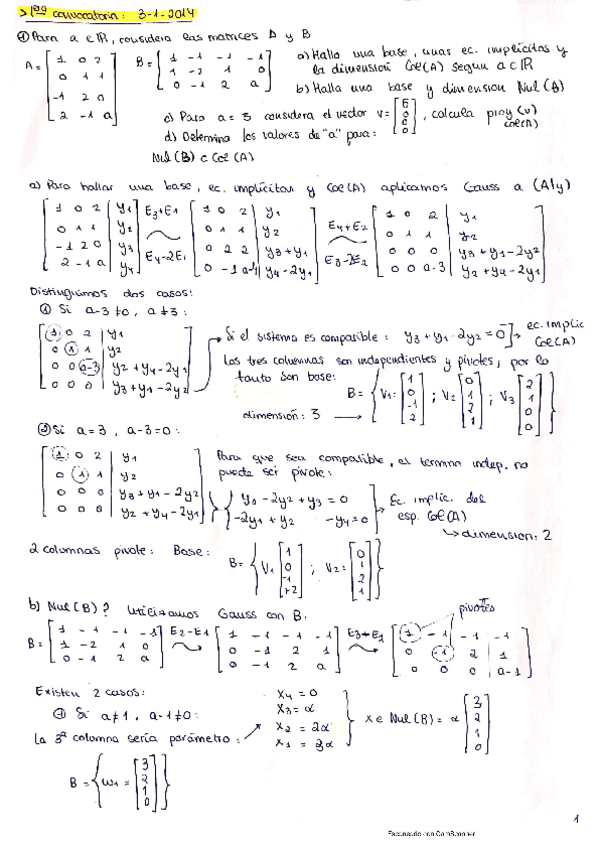 > 1ª convocatoria: 3-1-2014
① Para a ∈ ℝ, considera las matrices A y B
A = [1 0 2; 0 1 1; -1 2 0; 2 -1 a] B = [1 -1 -1 -1; 1 -2 1 0; 0 -1 2 a]
a) Halla una base, unas ec. implícitas y
la dimensión Col(A) segun a ∈ ℝ
b) Halla una base y dimension Nul(B)
c) Para a = 3 considera el vector v = , calcula proy (v) Col(A)
d) Determina los valores de "a" para:
Nul(B) ⊂ Col(A)
a) Para hallar una base, ec. implícitas y Col(A) aplicamos Gauss a (A|y)
[1 0 2 | y1; 0 1 1 | y2; -1 2 0 | y3; 2 -1 a | y4] E3+E1 E4-2E1 [1 0 2 | y1; 0 1 1 | y2; 0 2 2 | y3+y1; 0 -1 a-4 | y4-2y1] E4+E2 E3-2E2 [1 0 2 | y1; 0 1 1 | y2; 0 0 0 | y3+y1-2y2; 0 0 a-3 | y2+y4-2y1]
Distinguimos dos casos:
① Si a-3≠0, a≠3:
[1 0 2 | y1; 0 1 1 | y2; 0 0 a-3 | y2+y4-2y1; 0 0 0 | y3+y1-2y2]
Si el sistema es compatible: y3+y1-2y2=0 → ec. implic Col(A)
Las tres columnas son independientes y pivotes, por lo
tanto son base:
B = { V1 = [1; 0; -1; 2] ; V2 [0; 1; 2; -1] ; V3 [2; 1; 0; 0] }
dimensión: 3
② Si a=3, a-3=0:
[1 0 2 | y1; 0 1 1 | y2; 0 0 0 | y3+y1-2y2; 0 0 0 | y2+y4-2y1]
Para que sea compatible, el termino indep. no
puede ser pivote:
y1-2y2+y3=0
-2y1+y2 -y4=0
Ec. implic. del
esp. Col(A)
↳ dimension: 2
2 columnas pivote: Base:
B = { V1 [1; 0; -1; +2] ; V2 = [0; 1; 2; 1] }
b) Nul(B)? Utilizamos Gauss con B.
pivotes
B = [1 -1 -1 -1; 1 -2 1 0; 0 -1 2 a] E2-E1 [1 -1 -1 -1; 0 -1 2 1; 0 -1 2 a] E3+E2 [1 -1 -1 -1; 0 -1 2 1; 0 0 0 a-1]
Existen 2 casos:
① Si a≠1, a-1≠0:
La 3ª columna sería parámetro:
x4 = 0
x3 = α
x2 = 2α
x1 = 3α
x ∈ Nul(B) = α [3; 2; 1; 0]
B = { w1 = [3; 2; 1; 0] }
1
Escaneado con CamScanner